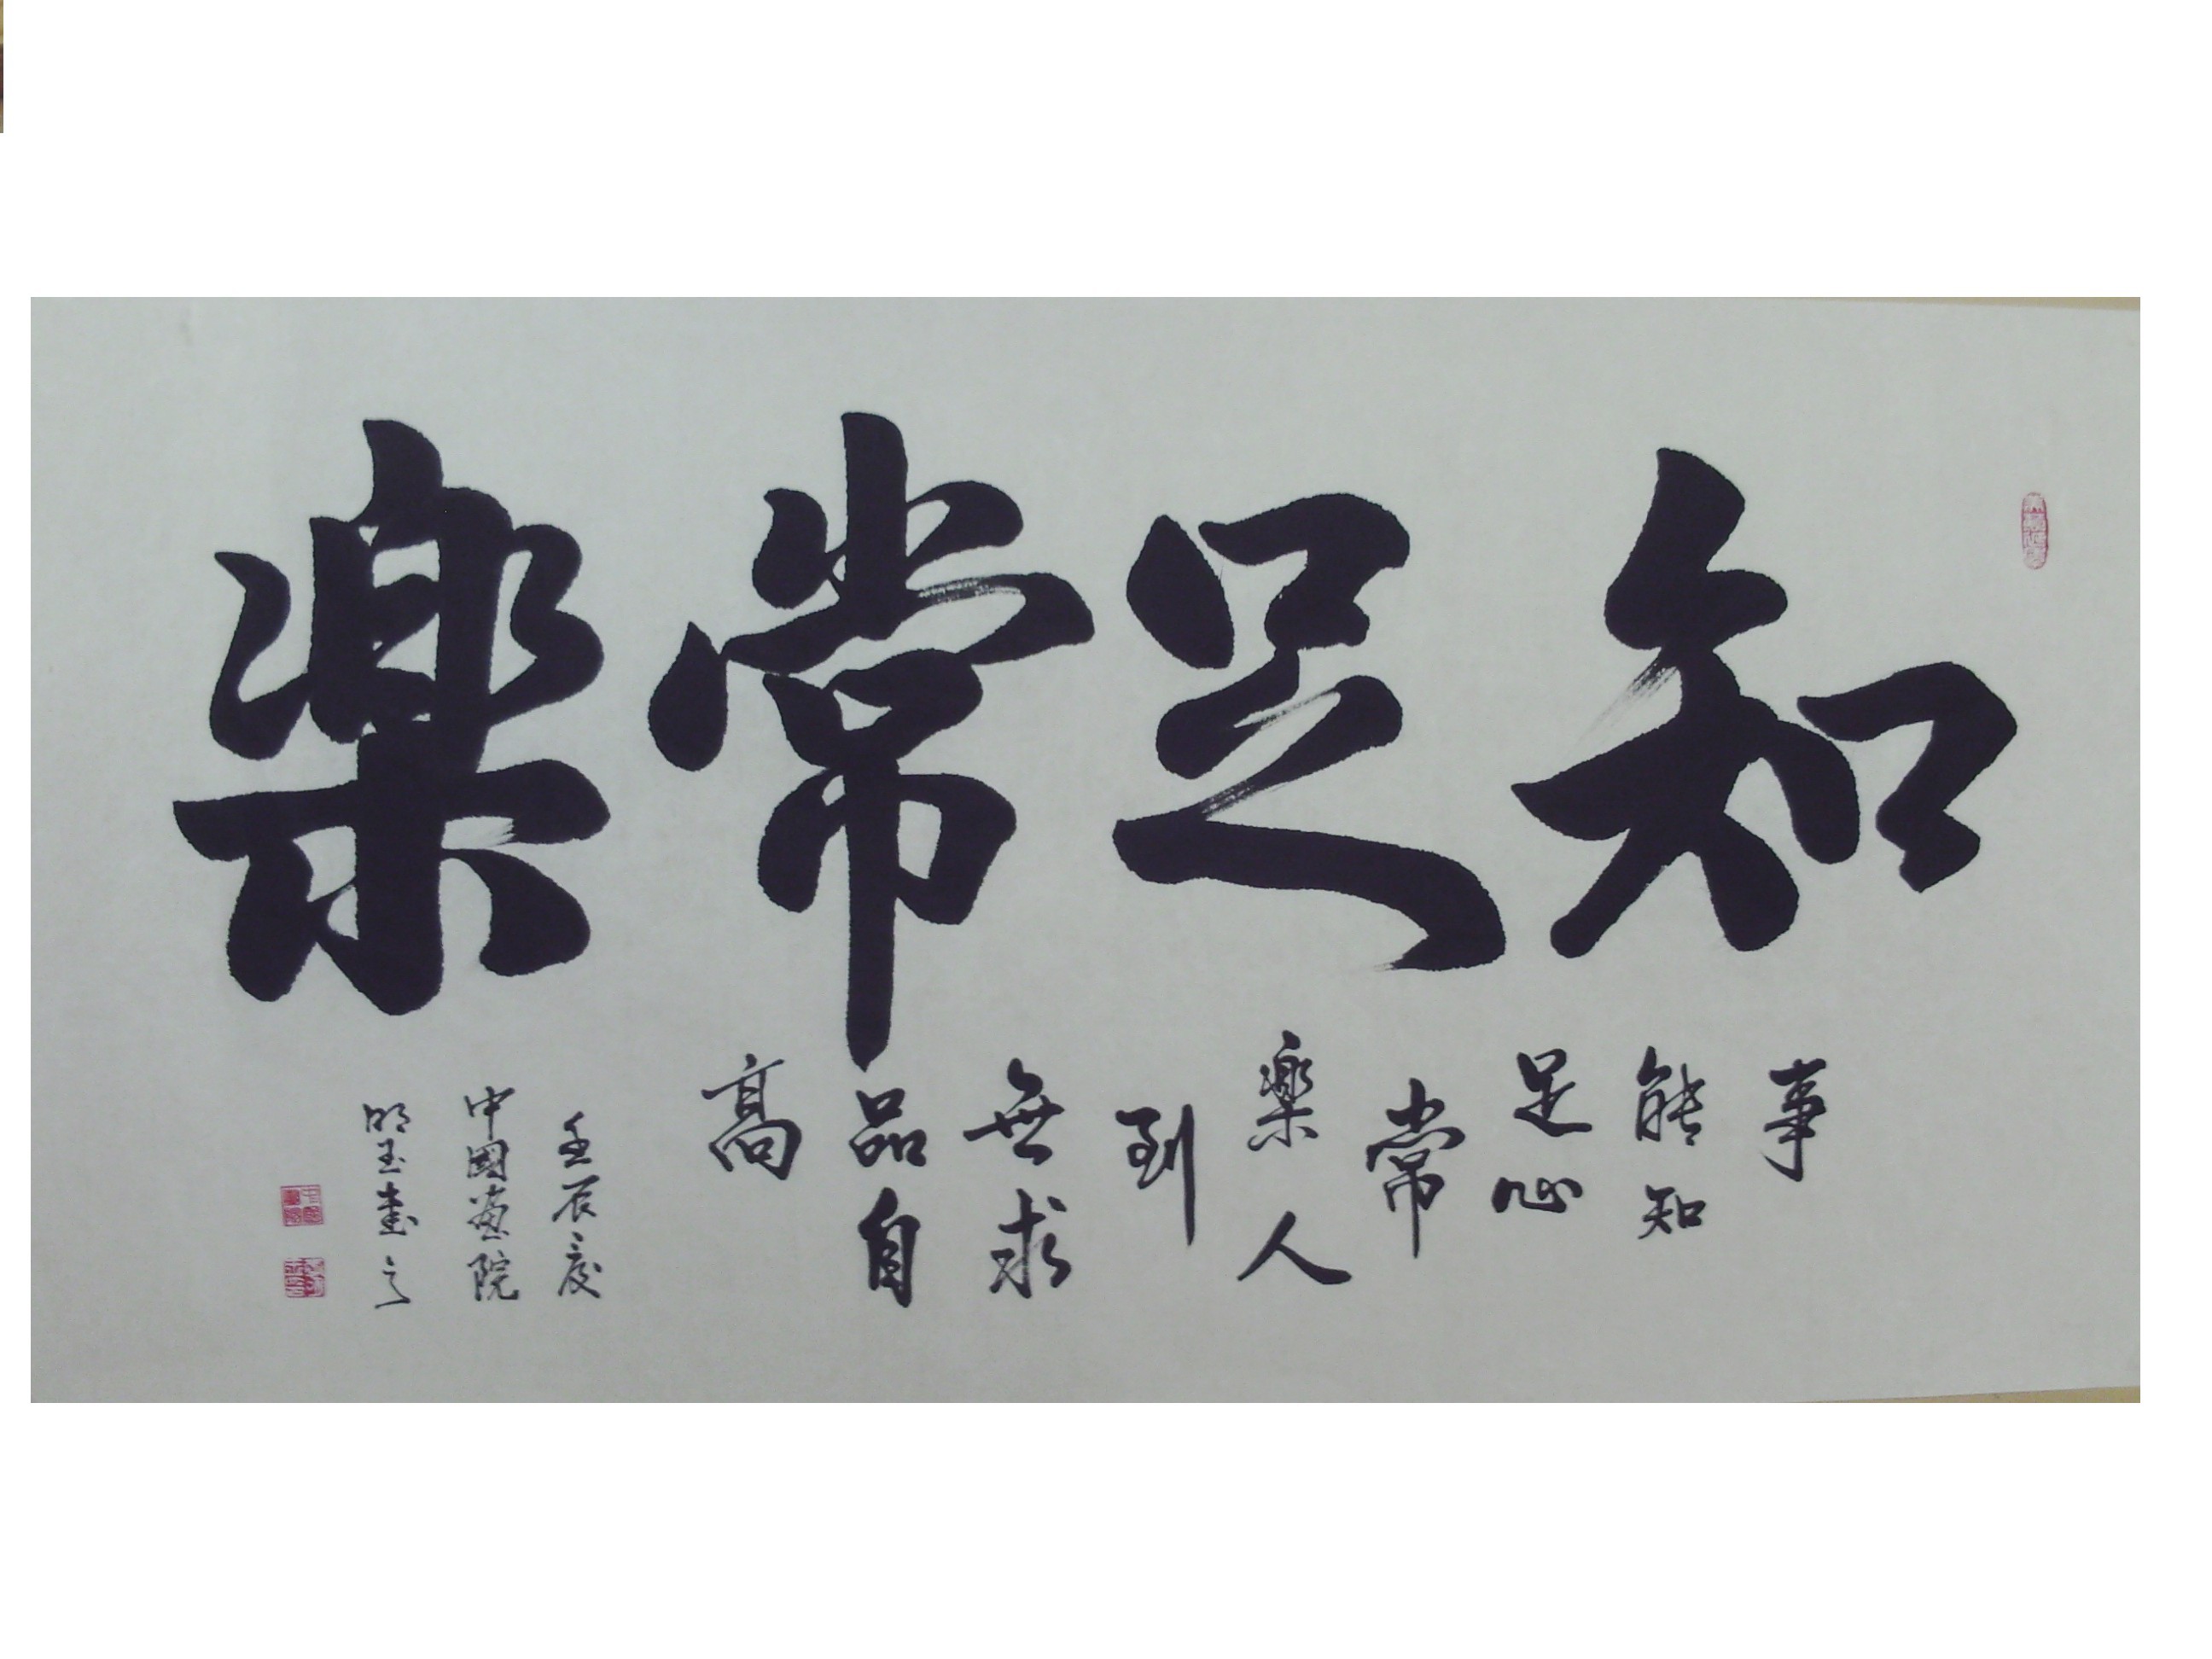 知足常樂
事
能知
足心
常
樂人
到
無求
品自
高
壬辰夏
中國畫院
明玉書之